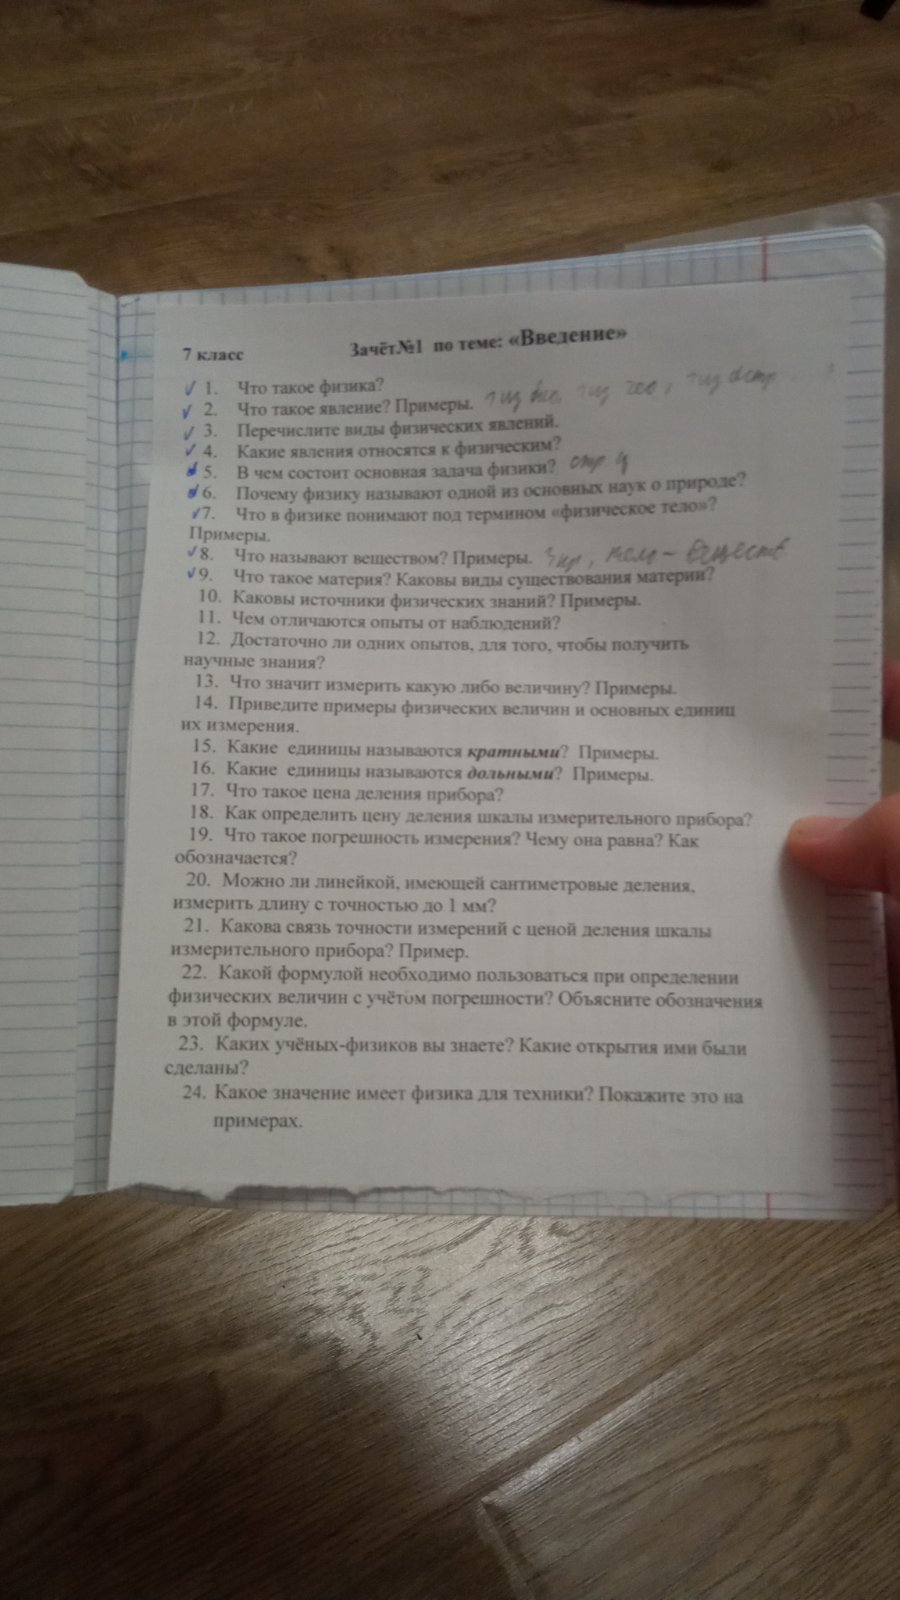 7 класс Зачёт№1 по теме: «Введение»
1. Что такое физика?
2. Что такое явление? Примеры.
3. Перечислите виды физических явлений.
4. Какие явления относятся к физическим?
5. В чем состоит основная задача физики? стр 4
6. Почему физику называют одной из основных наук о природе?
7. Что в физике понимают под термином «физическое тело»?
Примеры.
8. Что называют веществом? Примеры. 3 пр, тело – веществ
9. Что такое материя? Каковы виды существования материи?
10. Каковы источники физических знаний? Примеры.
11. Чем отличаются опыты от наблюдений?
12. Достаточно ли одних опытов, для того, чтобы получить
научные знания?
13. Что значит измерить какую либо величину? Примеры.
14. Приведите примеры физических величин и основных единиц
их измерения.
15. Какие единицы называются кратными? Примеры.
16. Какие единицы называются дольными? Примеры.
17. Что такое цена деления прибора?
18. Как определить цену деления шкалы измерительного прибора?
19. Что такое погрешность измерения? Чему она равна? Как
обозначается?
20. Можно ли линейкой, имеющей сантиметровые деления,
измерить длину с точностью до 1 мм?
21. Какова связь точности измерений с ценой деления шкалы
измерительного прибора? Пример.
22. Какой формулой необходимо пользоваться при определении
физических величин с учётом погрешности? Объясните обозначения
в этой формуле.
23. Каких учёных-физиков вы знаете? Какие открытия ими были
сделаны?
24. Какое значение имеет физика для техники? Покажите это на
примерах.